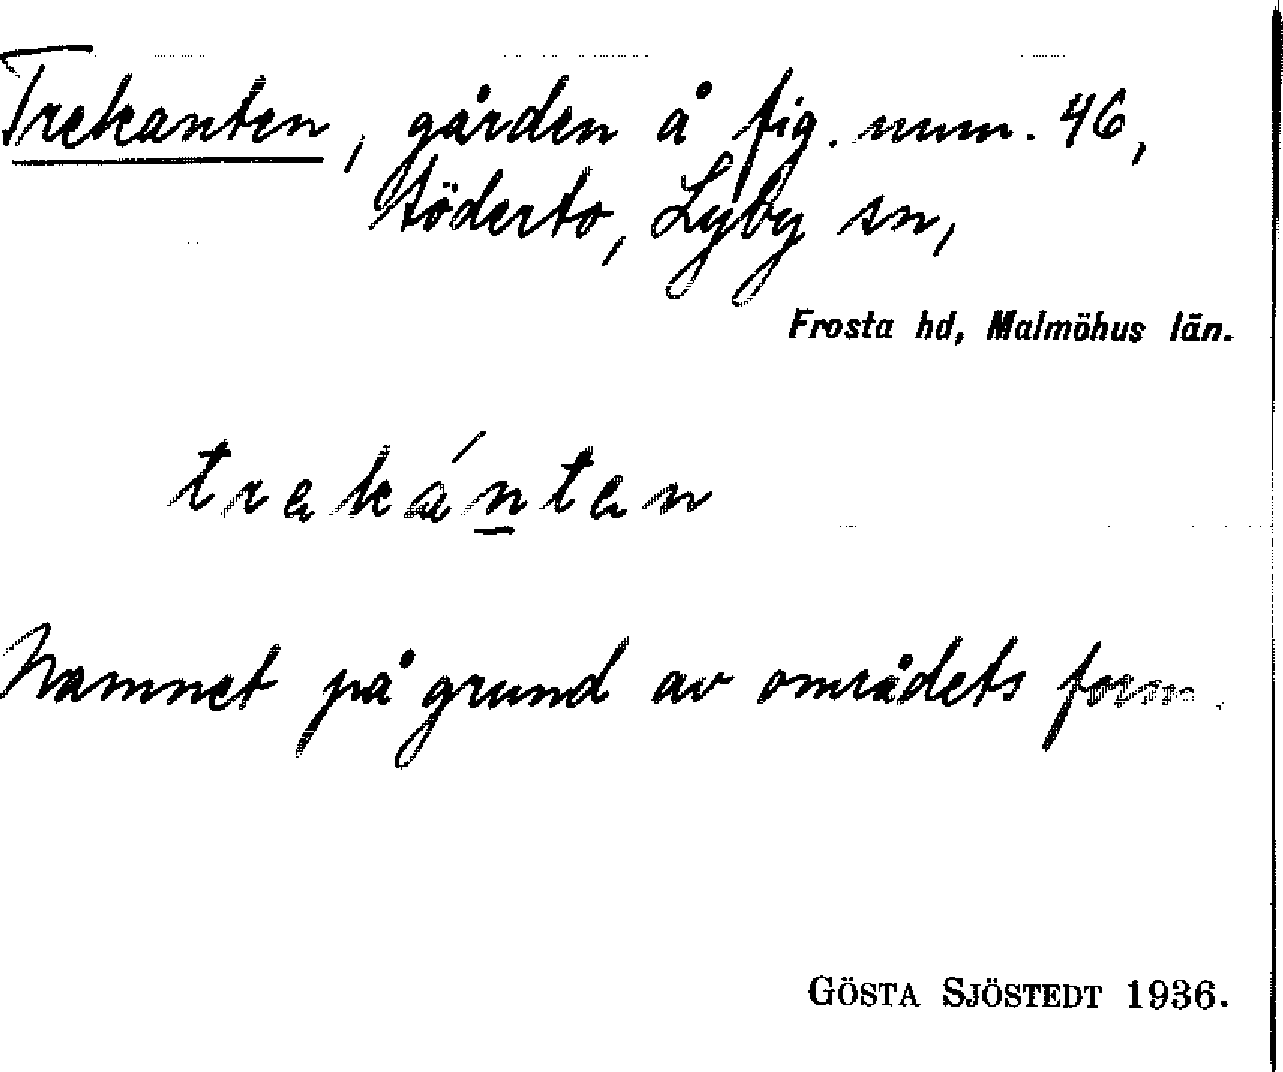 Trekanten, gården å fig. num. 46,
Söderto, Lyby sn,
Frosta hd, Malmöhus län.
trekánten
Namnet på grund av områdets form.
GÖSTA SJÖSTEDT 1936.